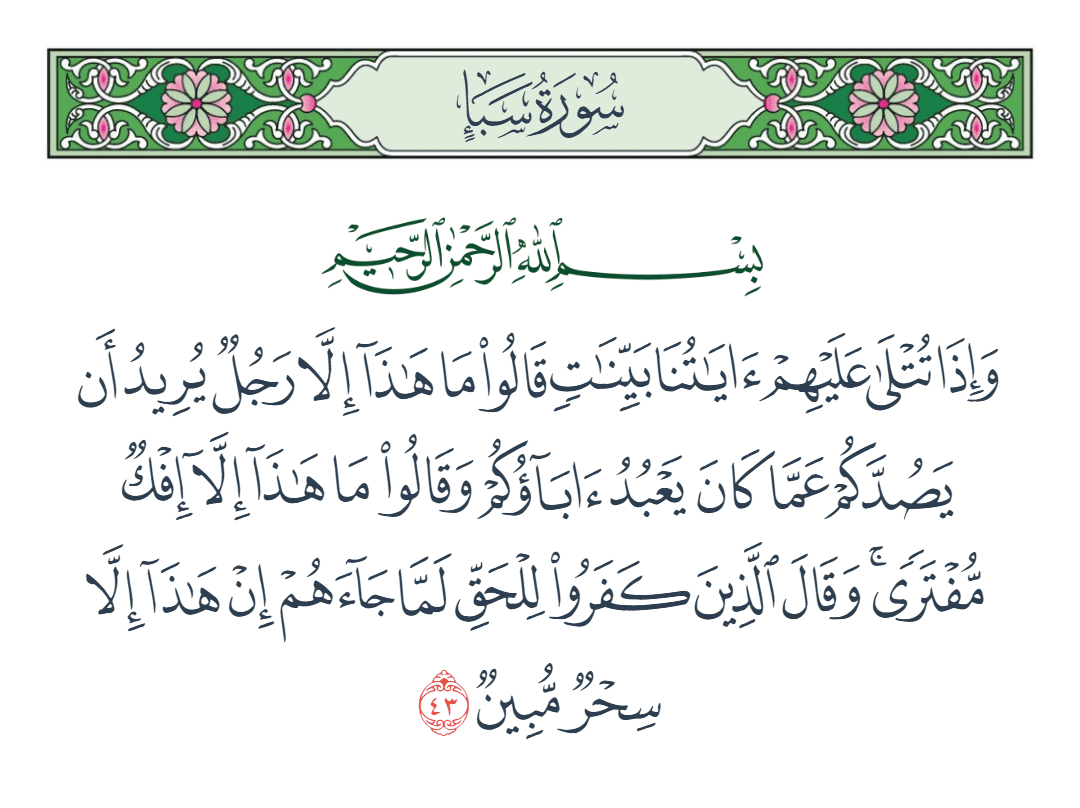 سُورَةُ سَبَإٍ
بِسْمِ ٱللَّهِ ٱلرَّحْمَٰنِ ٱلرَّحِيمِ
وَإِذَا تُتْلَىٰ عَلَيْهِمْ ءَايَٰتُنَا بَيِّنَٰتٍ قَالُوا۟ مَا هَٰذَآ إِلَّا رَجُلٌ يُرِيدُ أَن
يَصُدَّكُمْ عَمَّا كَانَ يَعْبُدُ ءَابَآؤُكُمْ وَقَالُوا۟ مَا هَٰذَآ إِلَّآ إِفْكٌ
مُّفْتَرًى ۚ وَقَالَ ٱلَّذِينَ كَفَرُوا۟ لِلْحَقِّ لَمَّا جَآءَهُمْ إِنْ هَٰذَآ إِلَّا
سِحْرٌ مُّبِينٌ ٤٣